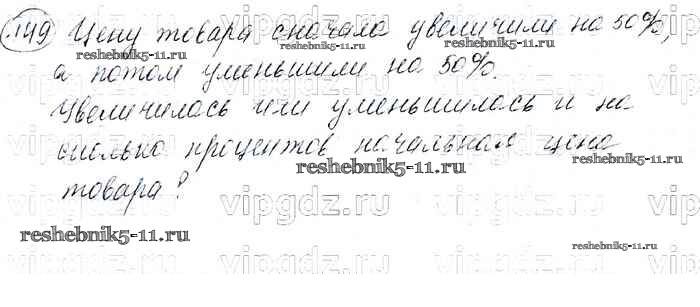 149 Цену товара сначала увеличили на 50%,
а потом уменьшили на 50%.
Увеличилась или уменьшилась и на
сколько процентов начальная цена
товара?
reshebnik5-11.ru
reshebnik5-11.ru
reshebnik5-11.ru
reshebnik5-11.ru
vipgdz.ru vipgdz.ru vipgdz.ru
vipgdz.ru vipgdz.ru vipgdz.ru
vipgdz.ru vipgdz.ru vipgdz.ru
vipgdz.ru vipgdz.ru vipgdz.ru
vipgdz.ru vipgdz.ru vipgdz.ru